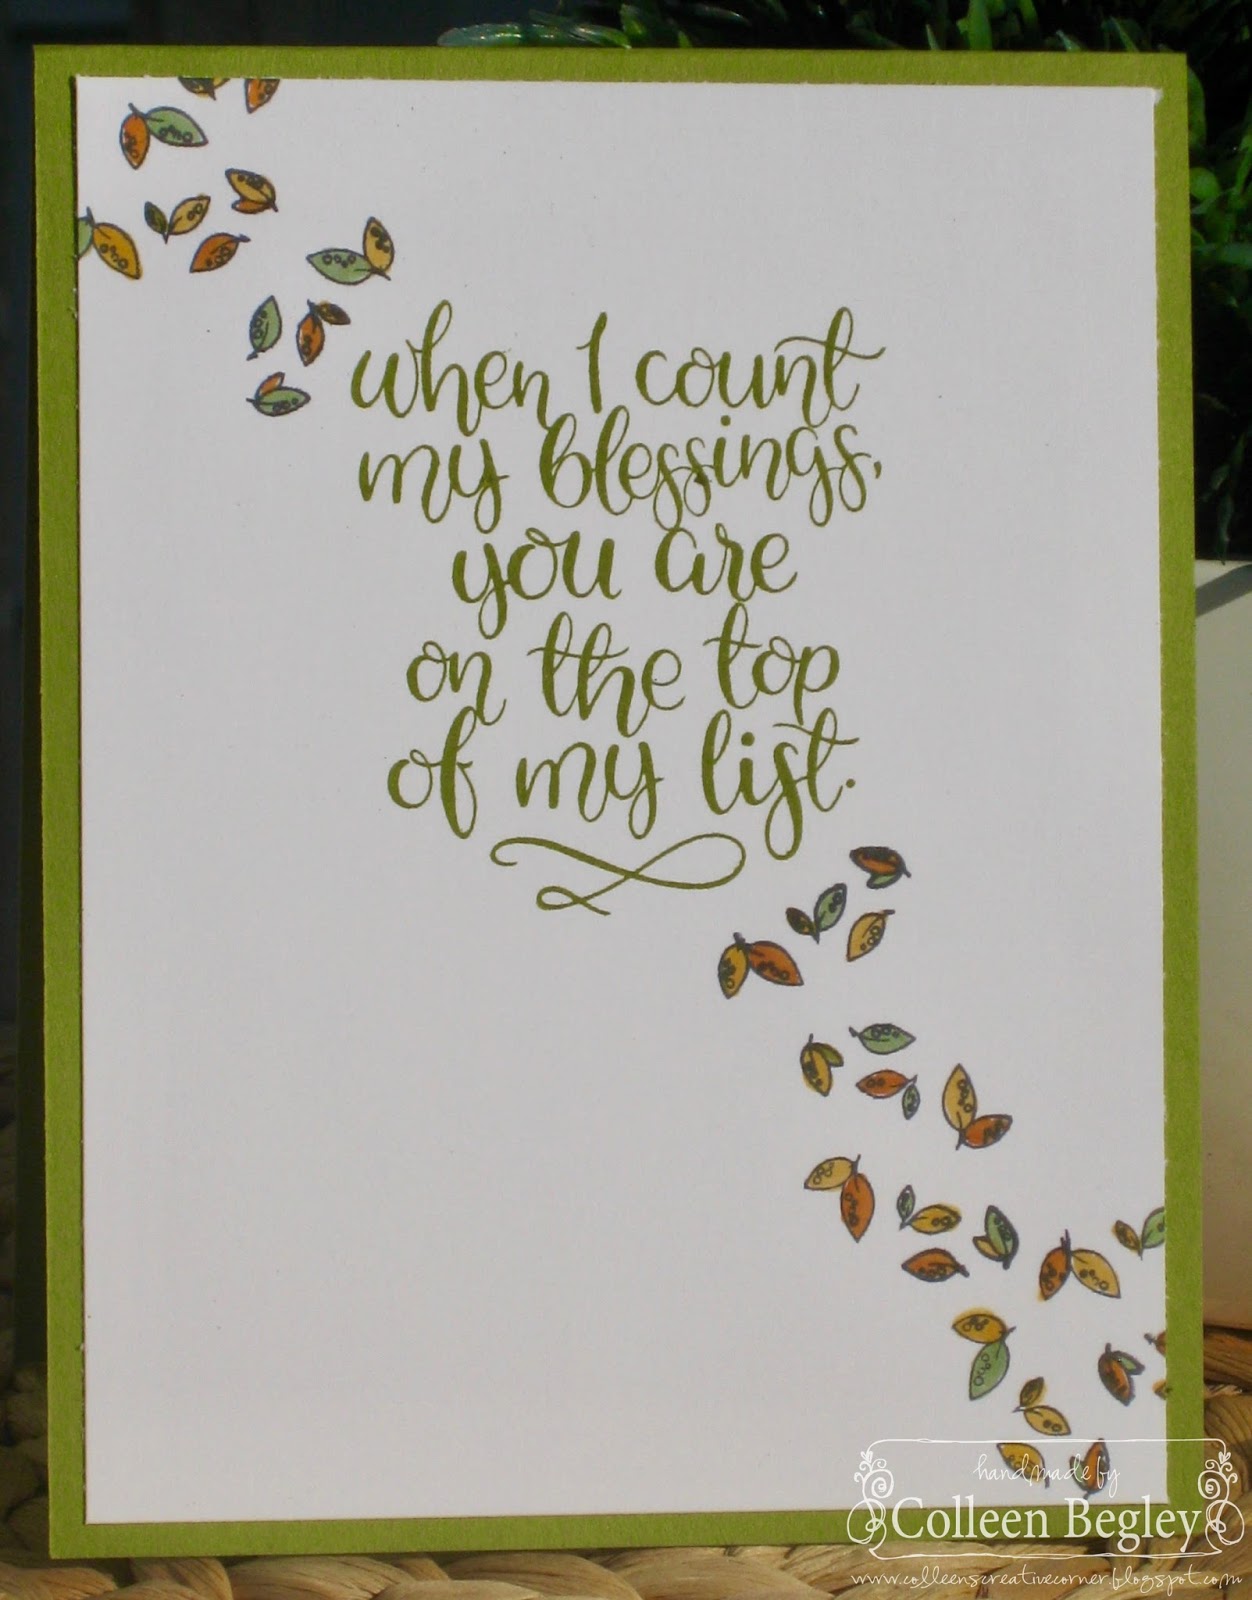 when I count
my blessings,
you are
on the top
of my list.
handmade by
Colleen Begley
www.colleenscreativecorner.blogspot.com